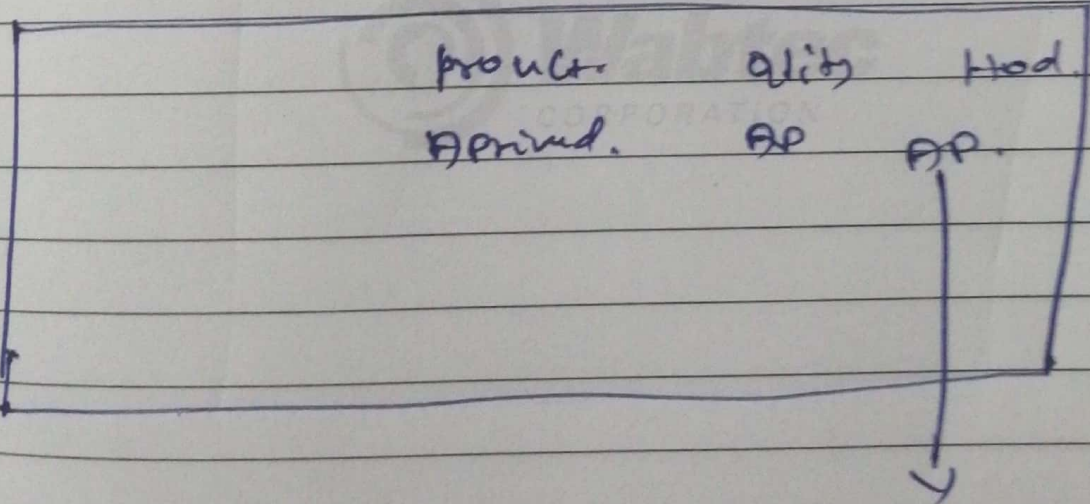 prouct. Qlity Hod.
Aprived. AP AP.
Wabtec
CORPORATION